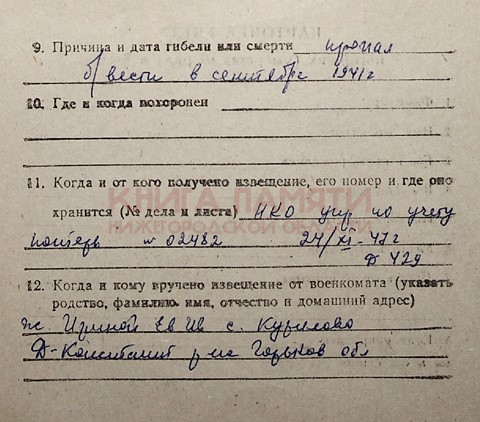 9. Причина и дата гибели или смерти пропал
б/ вести в сентябре 1941 г
10. Где и когда похоронен
11. Когда и от кого получено извещение, его номер и где оно
хранится (№ дела и листа) НКО упр по учету
потерь № 02482 24/XI-47 г
Д 429
КНИГА ПАМЯТИ
НИЖЕГОРОДСКОЙ ОБЛАСТИ
12. Когда и кому вручено извещение от военкомата (указать
родство, фамилию, имя, отчество и домашний адрес)
ж. Ев Ив с. Курилово
Д-Константин р-на Горьков обл